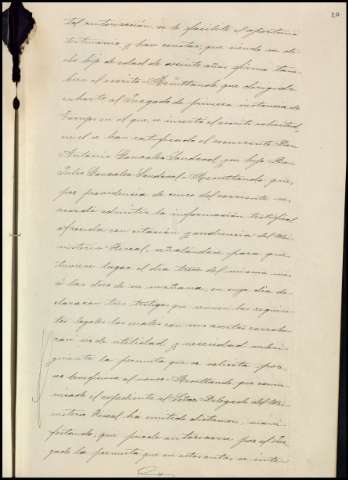 tal autorización se le facilite el oportuno
testimonio, y hace constar, que siendo su di-
cho hijo de edad de veinte años firma tam-
bien el escrito = Resultando que dirigido
exhorto al Juzgado de primera instancia de
en el que se insertó el escrito solicitud,
en él se han ratificado el recurrente Don
Antonio Gonzalez Sandoval y su hijo Don
Julio Gonzalez Sandoval = Resultando, que,
por providencia de cinco del corriente se
acordó admitir la información testifical
ofrecida con citación y audiencia del Mi-
nisterio Fiscal, señalándose para que
tuviera lugar el dia trece del mismo mes
á las doce de su mañana, en cuyo dia de-
clararon tres testigos que reunen los requisi-
tos legales los cuales con
can de utilidad y necesidad
la permuta que se solicita, para
su beneficio al menor = Resultando que comu-
nicado el expediente al Señor Delegado del Mi-
nisterio Fiscal, ha emitido dictamen, mani-
festando, que puede autorizarse por el Juz-
gado la permuta que en estos autos se inte-